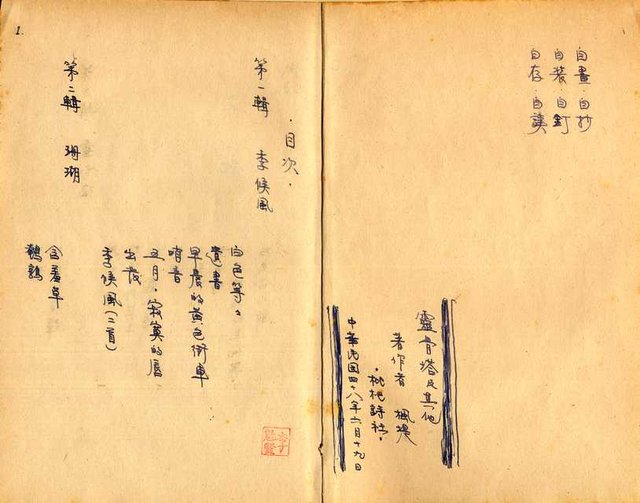 自畫·自抄
自裝·自釘
自存·自讀
靈骨塔及其他
著作者 楓堤
·枇杷詩社·
中華民国四十八年六月十九日
·目次·
第一輯 季候風
白色等
遺書
早晨的黃色街車
哨音
五月,寂寞的唇
出發
季候風(二首)
第二輯 珊瑚
含羞草
鵪鶉
1.